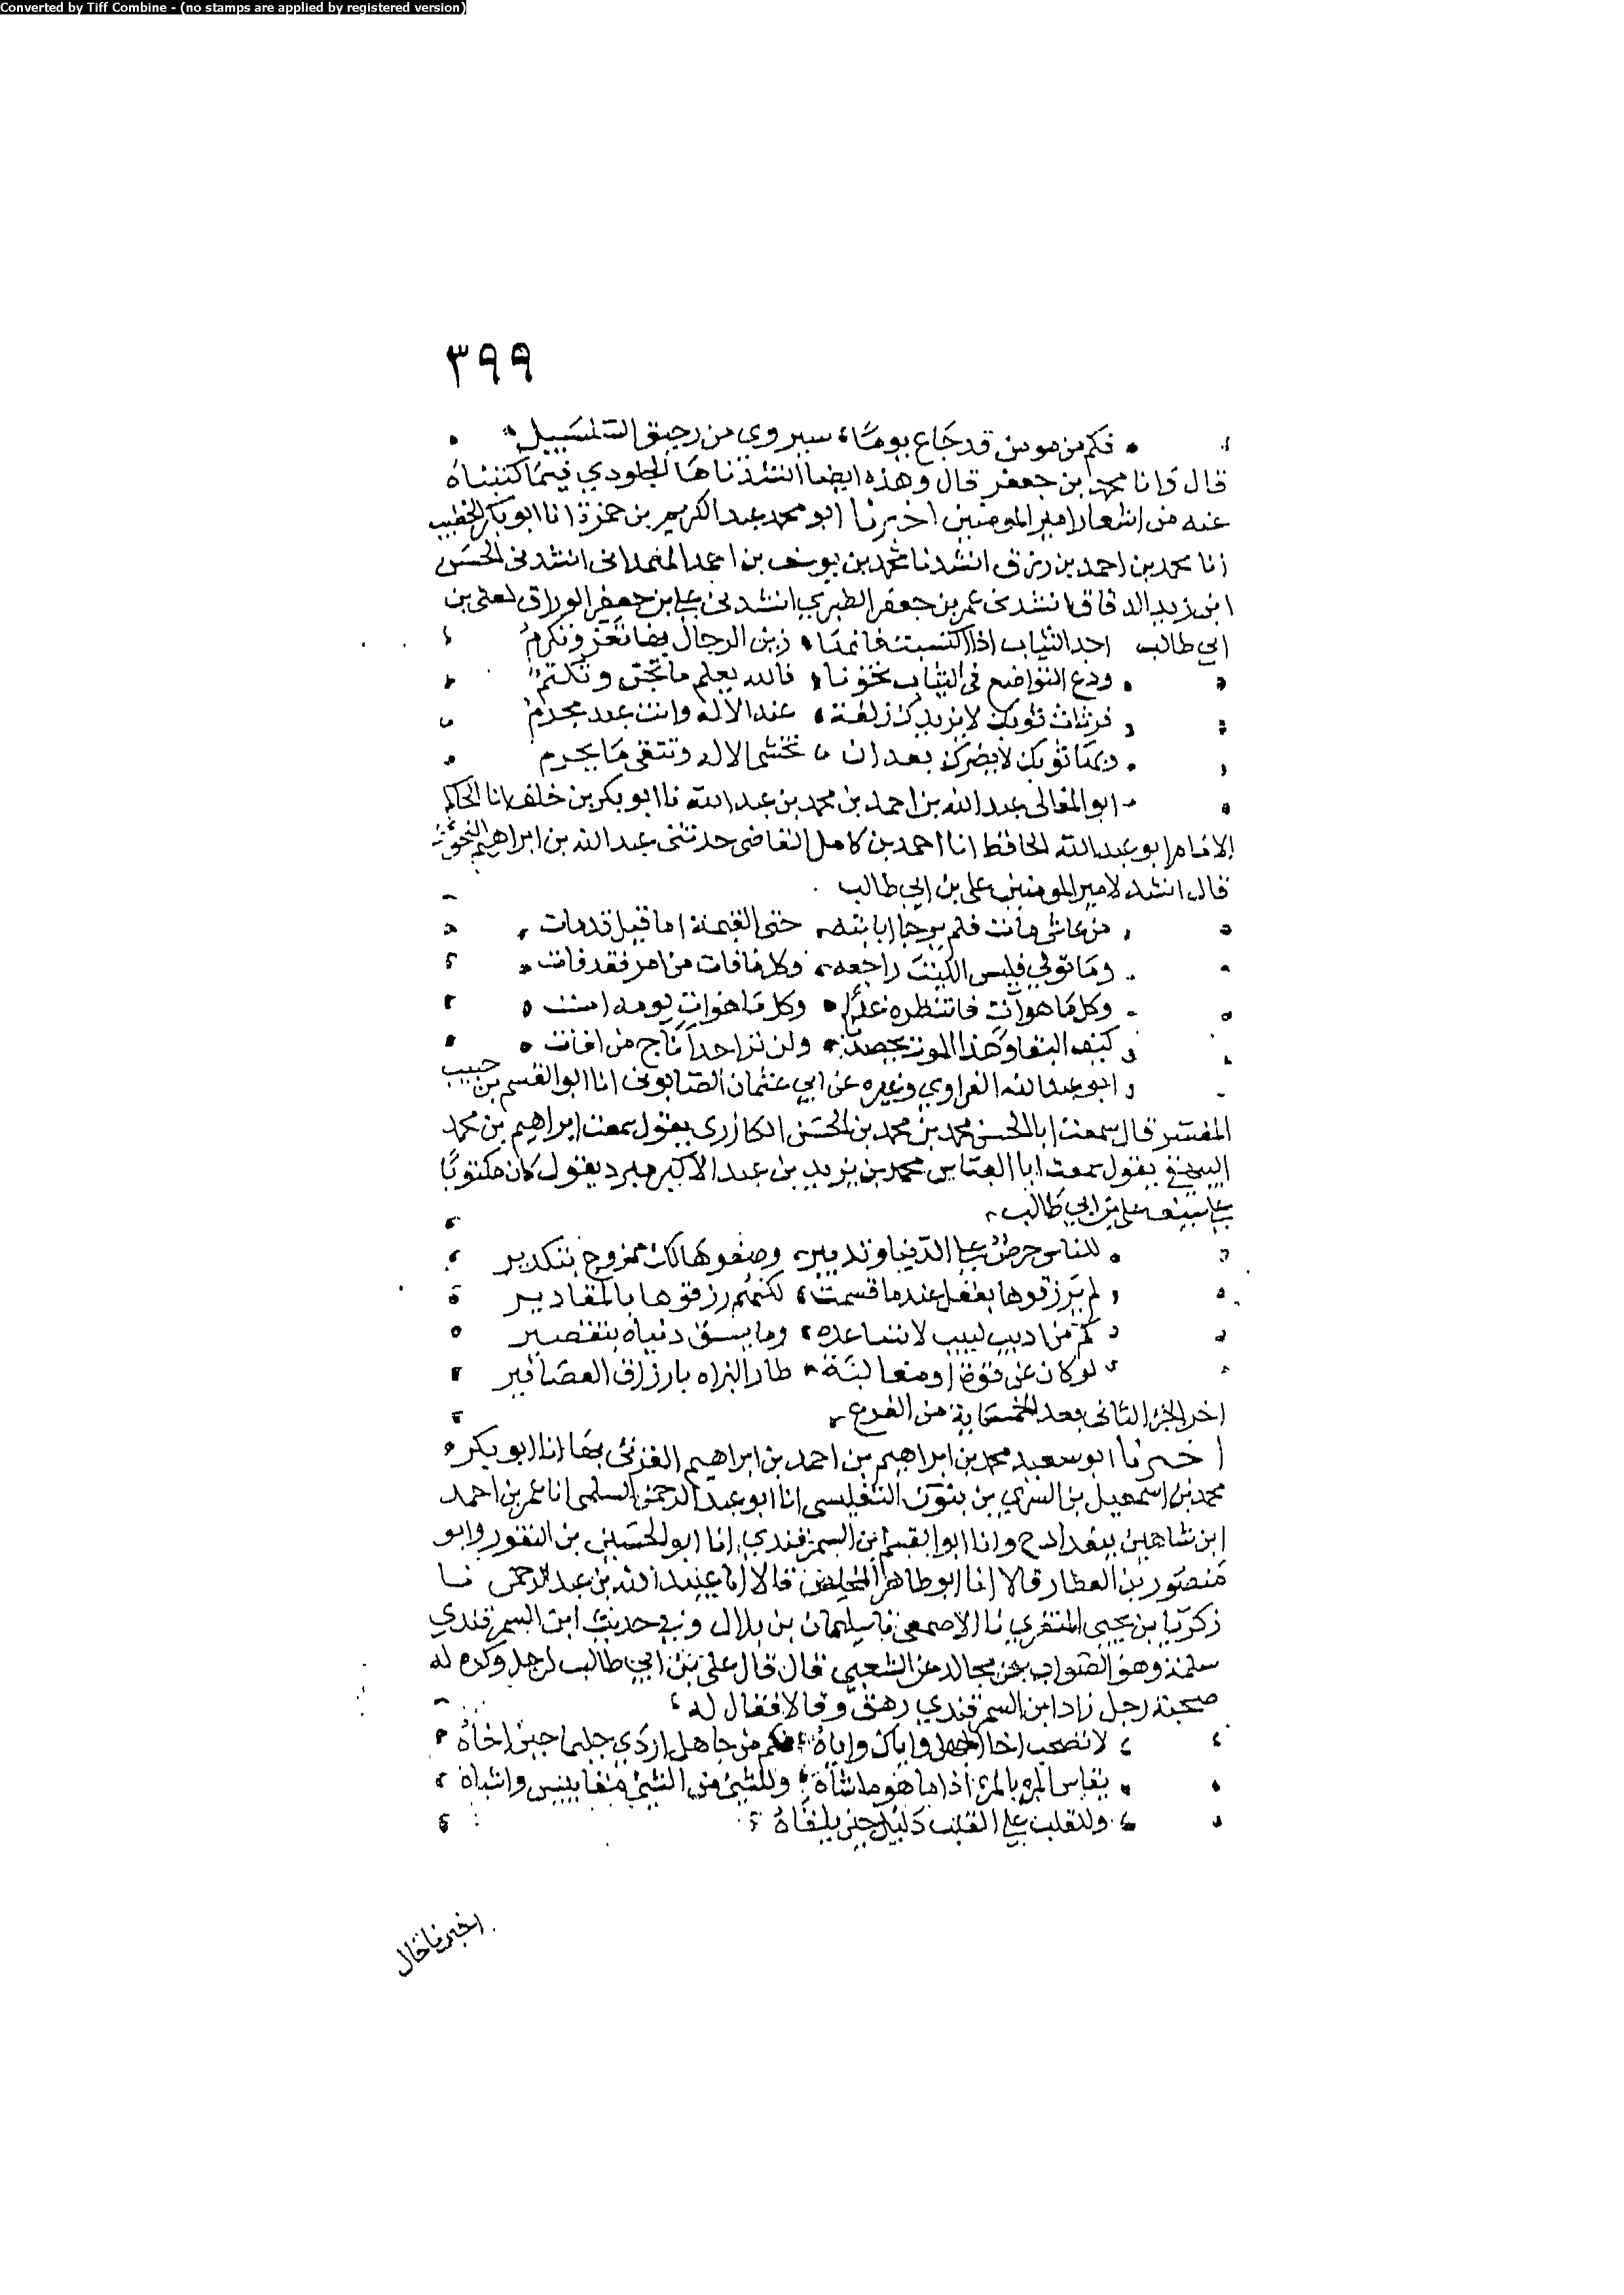 Converted by Tiff Combine - (no stamps are applied by registered version)
٣٩٩
فكم من مومن قد جاع يوما سيروى من رحيق السلسبيل
قال وانا محمد بن جعفر قال وهذه ايضا انشدناها الجلودي فيما كتبناه
عنه من اشعار امير المومنين اخبرنا ابو محمد عبد الكريم بن حمزة انا ابو بكر الخطيب
انا محمد بن احمد بن رزق انشدنا محمد بن يوسف بن احمد الهمداني انشدني الحسن
ابن زيد الدقاق انشدني عمر بن جعفر الطبري انشدني علي بن جعفر الوراق لعلي بن
ابي طالب اجد الثياب اذا اكتسيت فانها زين الرجال بها تعز وتكرم
ودع التواضع في الثياب تخونا فالله يعلم ما تجن وتكتم
فرثاث ثوبك لا يزيدك زلفة عند الاله وانت عبد مجرم
وبهاء ثوبك لا يضرك بعد ان تخشى الاله وتتقي ما يحرم
ابو المعالي عبد الله بن احمد بن محمد بن عبد الله نا ابو بكر بن خلف انا الحاكم
الامام ابو عبد الله الحافظ انا احمد بن كامل القاضي حدثني عبد الله بن ابراهيم النحوي
قال انشد لامير المومنين علي بن ابي طالب
وما تولى فليس الليت راجعه وكل ما فات من امر فقد فات
وكل ما هو آت فانتظره غدا وكل ما هو آت يومه
كيف البقا وهذا الموت يحصدنا ولن ترا احدا ناج من افات
ابو عبد الله الفراوي وغيره عن ابي عثمان الصابوني انا ابو القسم بن حبيب
المفسر قال سمعت ابا الحسن محمد بن محمد بن الحسن الكازري يقول سمعت ابراهيم بن محمد
يقول سمعت ابا العباس محمد بن يزيد بن عبد الاكبر مبرد يقول كان مكتوبا
علي سيف علي بن ابي طالب
للناس حرص علي الدنيا وتدبير وصفوها لك ممزوج بتكدير
لم يرزقوها بعقل عند ما قسمت لكنهم رزقوها بالمقادير
كم من اديب لبيب لا تساعده وما يسق دنياه بتقصير
لو كان عن قوة او مغالبة طار البزاه بارزاق العصافير
اخر الجزء الثاني بعد الخمسماية من الفرع
اخبرنا ابو سعيد محمد بن ابراهيم بن احمد بن ابراهيم الغزني بها انا ابو بكر
محمد بن اسمعيل بن السري بن بنون التفليسي انا ابو عبد الرحمن السلمي انا عمر بن احمد
ابن شاهين ببغداد ح وانا ابو القسم ابن السمرقندي انا ابو الحسين بن النقور وابو
منصور بن العطار قالا انا ابو طاهر المخلص قالا انا عبيد الله بن عبد الرحمن نا
زكريا بن يحيى المنقري نا الاصمعي نا سليمان بن بلال وفي حديث ابن السمرقندي
سلمة وهو الصواب عن مجالد عن الشعبي قال قال علي بن ابي طالب لرجل وكره له
صحبة رجل زاد ابن السمرقندي رهق وقالا فقال له
لا تصحب اخا الجهل واياك واياه فكم من جاهل اردي حليما حين اخاه
يقاس المرء بالمرء اذا ما هو ماشاه وللشئ من الشئ مقاييس واشباه
وللقلب علي القلب دليل حين يلقاه
اخبرنا خال